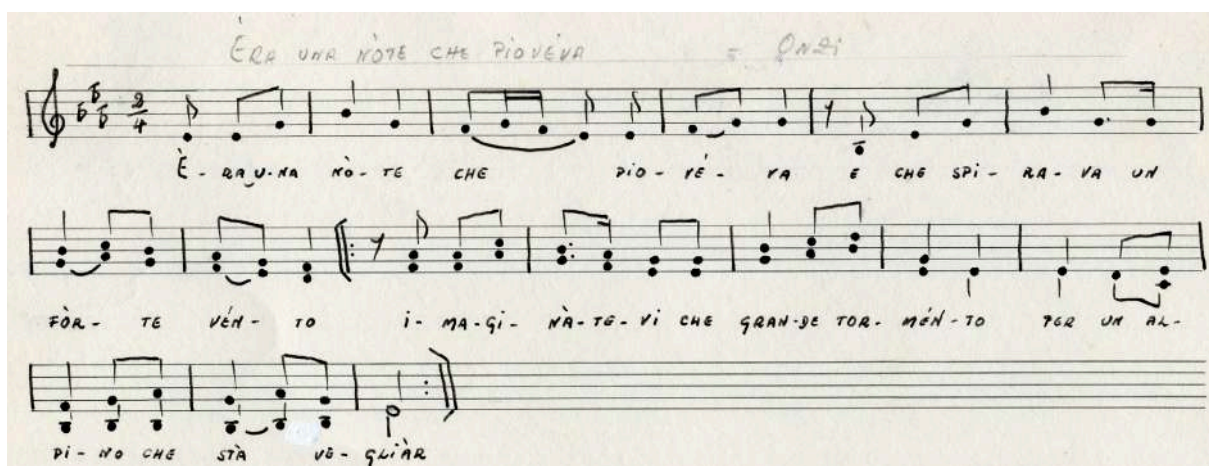 ÈRA UNA NÒTE CHE PIOVÉVA = ONDI
2/4
È - RA U - NA NÒ - TE CHE PIO - VÉ - VA E CHE SPI - RA - VA UN
FÒR - TE VÉN - TO I - MA - GI - NÀ - TE - VI CHE GRAN - DE TOR - MÉN - TO PER UN AL -
PI - NO CHE STÀ VE - GLIÀR